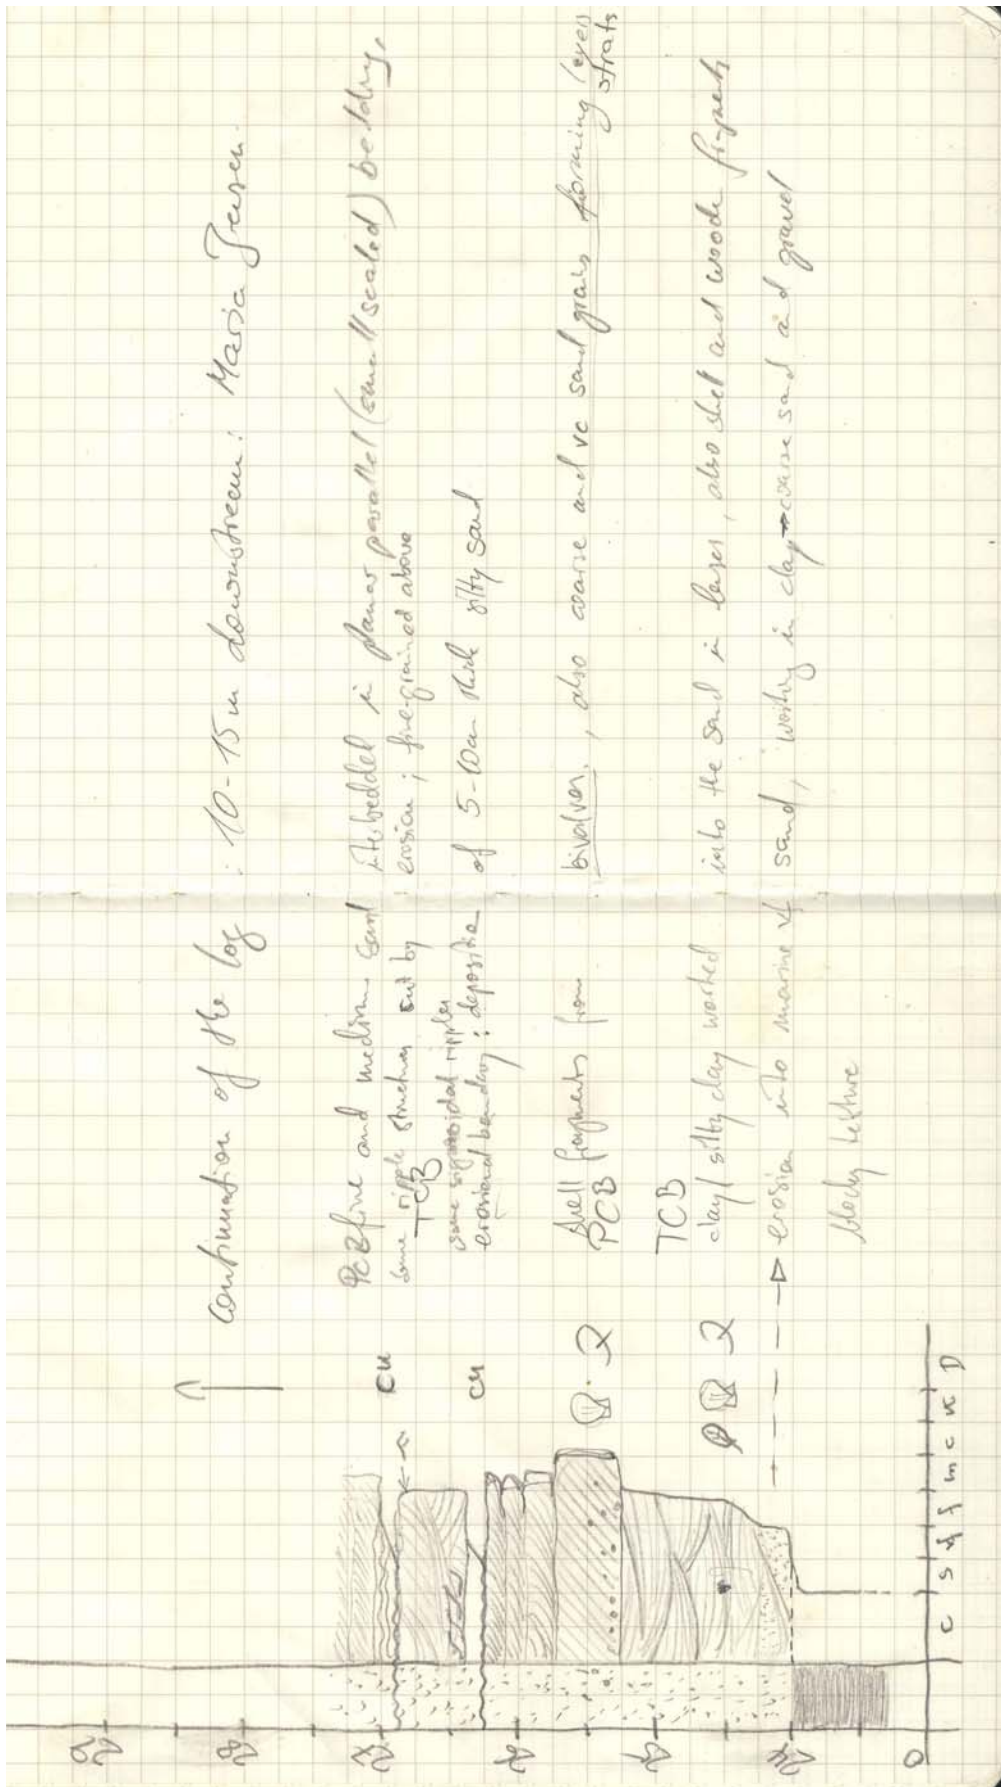 continuation of the log : 10-15 m downstream: Maria Jensen.
29
28
27
26
25
24
0
CU
PCB fine and medium sand interbedded in planar parallel (small scaled) bedding,
some ripple structures cut by erosion ; fine-grained above
TCB
CU
some sigmoidal ripples
erosional boundary : deposition of 5-10cm thick silty sand
shell fragments from bivalves, also coarse and vc sand grains forming layers
strats
PCB
TCB
clay / silty clay worked into the sand in layers, also shell and wooden fragments
erosion into marine vf sand, working in clay → coarse sand and gravel
blocky texture
c s vf f m c vc D